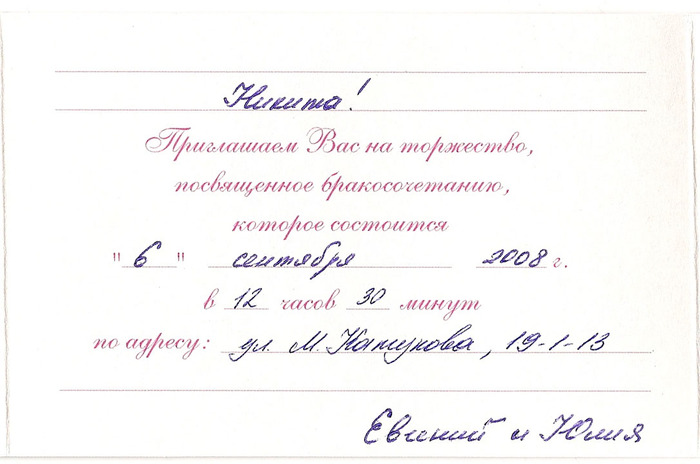 Никита!
Приглашаем Вас на торжество,
посвященное бракосочетанию,
которое состоится
"6" сентября 2008 г.
в 12 часов 30 минут
по адресу: ул. М. Катукова, 19-1-13
Евгений и Юлия